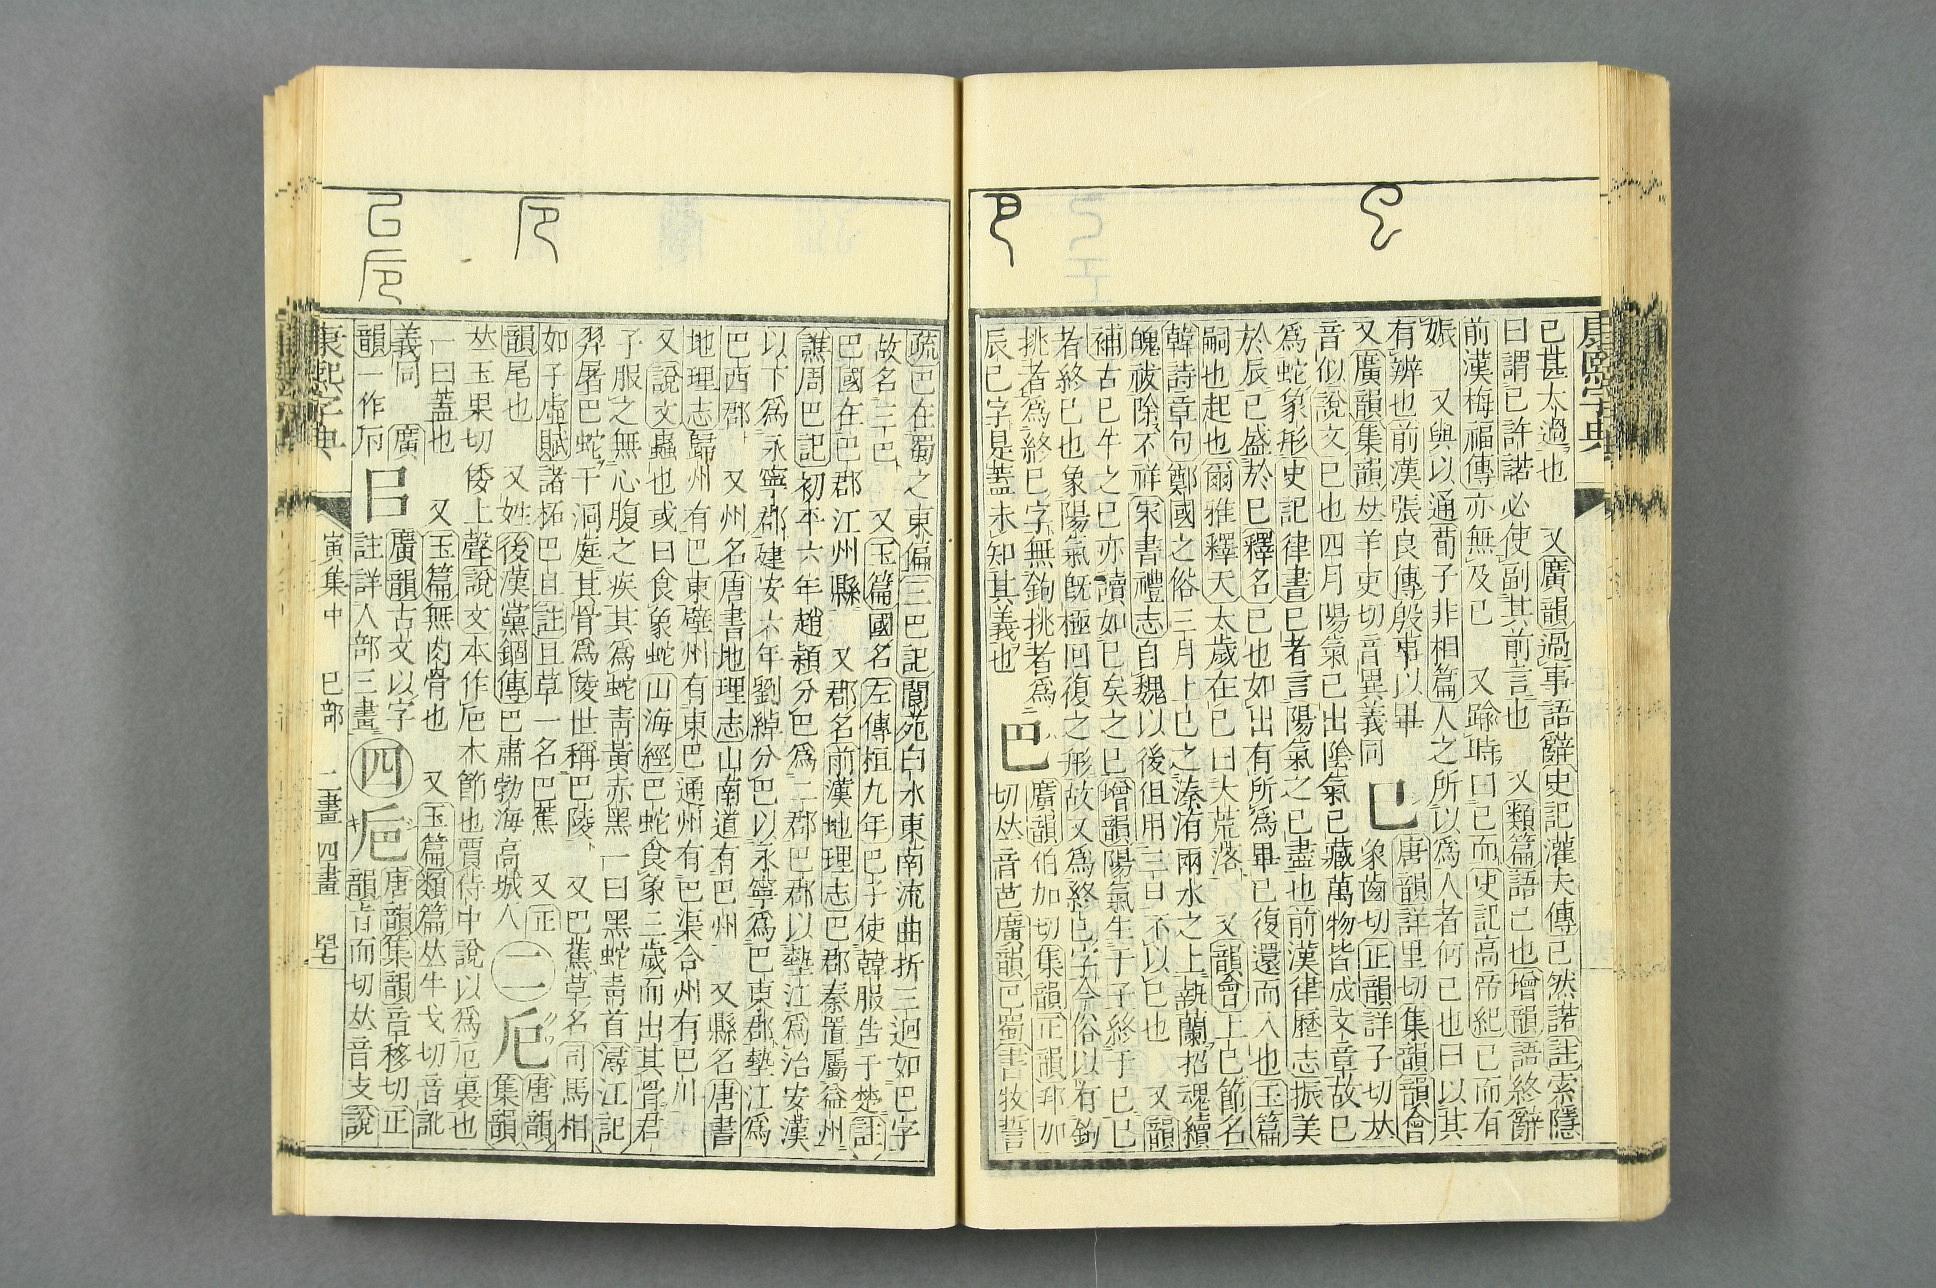 康熙字典
已甚太過也　又廣韻過事語辭史記灌夫傳已然諾註索隱
曰謂已許諾必使副其前言也　又類篇語已也增韻語終辭
前漢梅福傳亦無及已　又踰時曰已而史記高帝紀已而有
娠　又與以通荀子非相篇人之所以爲人者何已也曰以其
有辨也前漢張良傳殷事以畢
又廣韻集韻𠀤羊吏切音異義同
巳
唐韻詳里切集韻韻會
象齒切正韻詳子切𠀤
音似說文巳也四月陽氣巳出陰氣巳藏萬物皆成文章故巳
爲蛇象形史記律書巳者言陽氣之巳盡也前漢律歷志振美
於辰巳盛於巳釋名巳也如出有所爲畢巳復還而入也玉篇
嗣也起也爾雅釋天太歲在巳曰大荒落　又韻會上巳節名
韓詩章句鄭國之俗三月上巳之溱洧兩水之上執蘭招魂續
魄祓除不祥宋書禮志自魏以後但用三日不以巳也　又韻
補古巳午之巳亦讀如已矣之已增韻陽氣生于子終于巳巳
者終巳也象陽氣旣極回復之形故又爲終巳字今俗以有鉤
挑者爲終巳字無鉤挑者爲
辰巳字是蓋未知其義也
巴
廣韻伯加切集韻正韻邦加
切𠀤音芭廣韻巴蜀書牧誓
疏巴在蜀之東偏三巴記閬苑白水東南流曲折三迴如巴字
故名三巴　又玉篇國名左傳桓九年巴子使韓服告于楚註
巴國在巴郡江州縣　又郡名前漢地理志巴郡秦置屬益州
譙周巴記初平六年趙穎分巴爲二郡巴郡以墊江爲治安漢
以下爲永寧郡建安六年劉綽分巴以永寧爲巴東郡墊江爲
巴西郡　又州名唐書地理志山南道有巴州　又縣名唐書
地理志歸州有巴東壁州有東巴通州有巴渠合州有巴川
又說文蟲也或曰食象蛇山海經巴蛇食象三歲而出其骨君
子服之無心腹之疾其爲蛇靑黃赤黑一曰黑蛇靑首潯江記
羿屠巴蛇于洞庭其骨爲陵世稱巴陵　又巴蕉草名司馬相
如子虛賦諸柘巴且註且草一名巴蕉　又正
韻尾也　又姓後漢黨錮傳巴肅勃海高城人
二
唐韻
集韻
𠀤玉果切倭上聲說文本作厄木節也賈侍中說以爲厄裹也
一曰蓋也　又玉篇無肉骨也　又玉篇類篇𠀤牛戈切音訛
義同　廣
韻一作
㠯
廣韻古文以字
註詳人部三畫
四
巵
唐韻集韻章移切正
韻旨而切𠀤音支說
康熙字典
寅集中　巳部　二畫　四畫